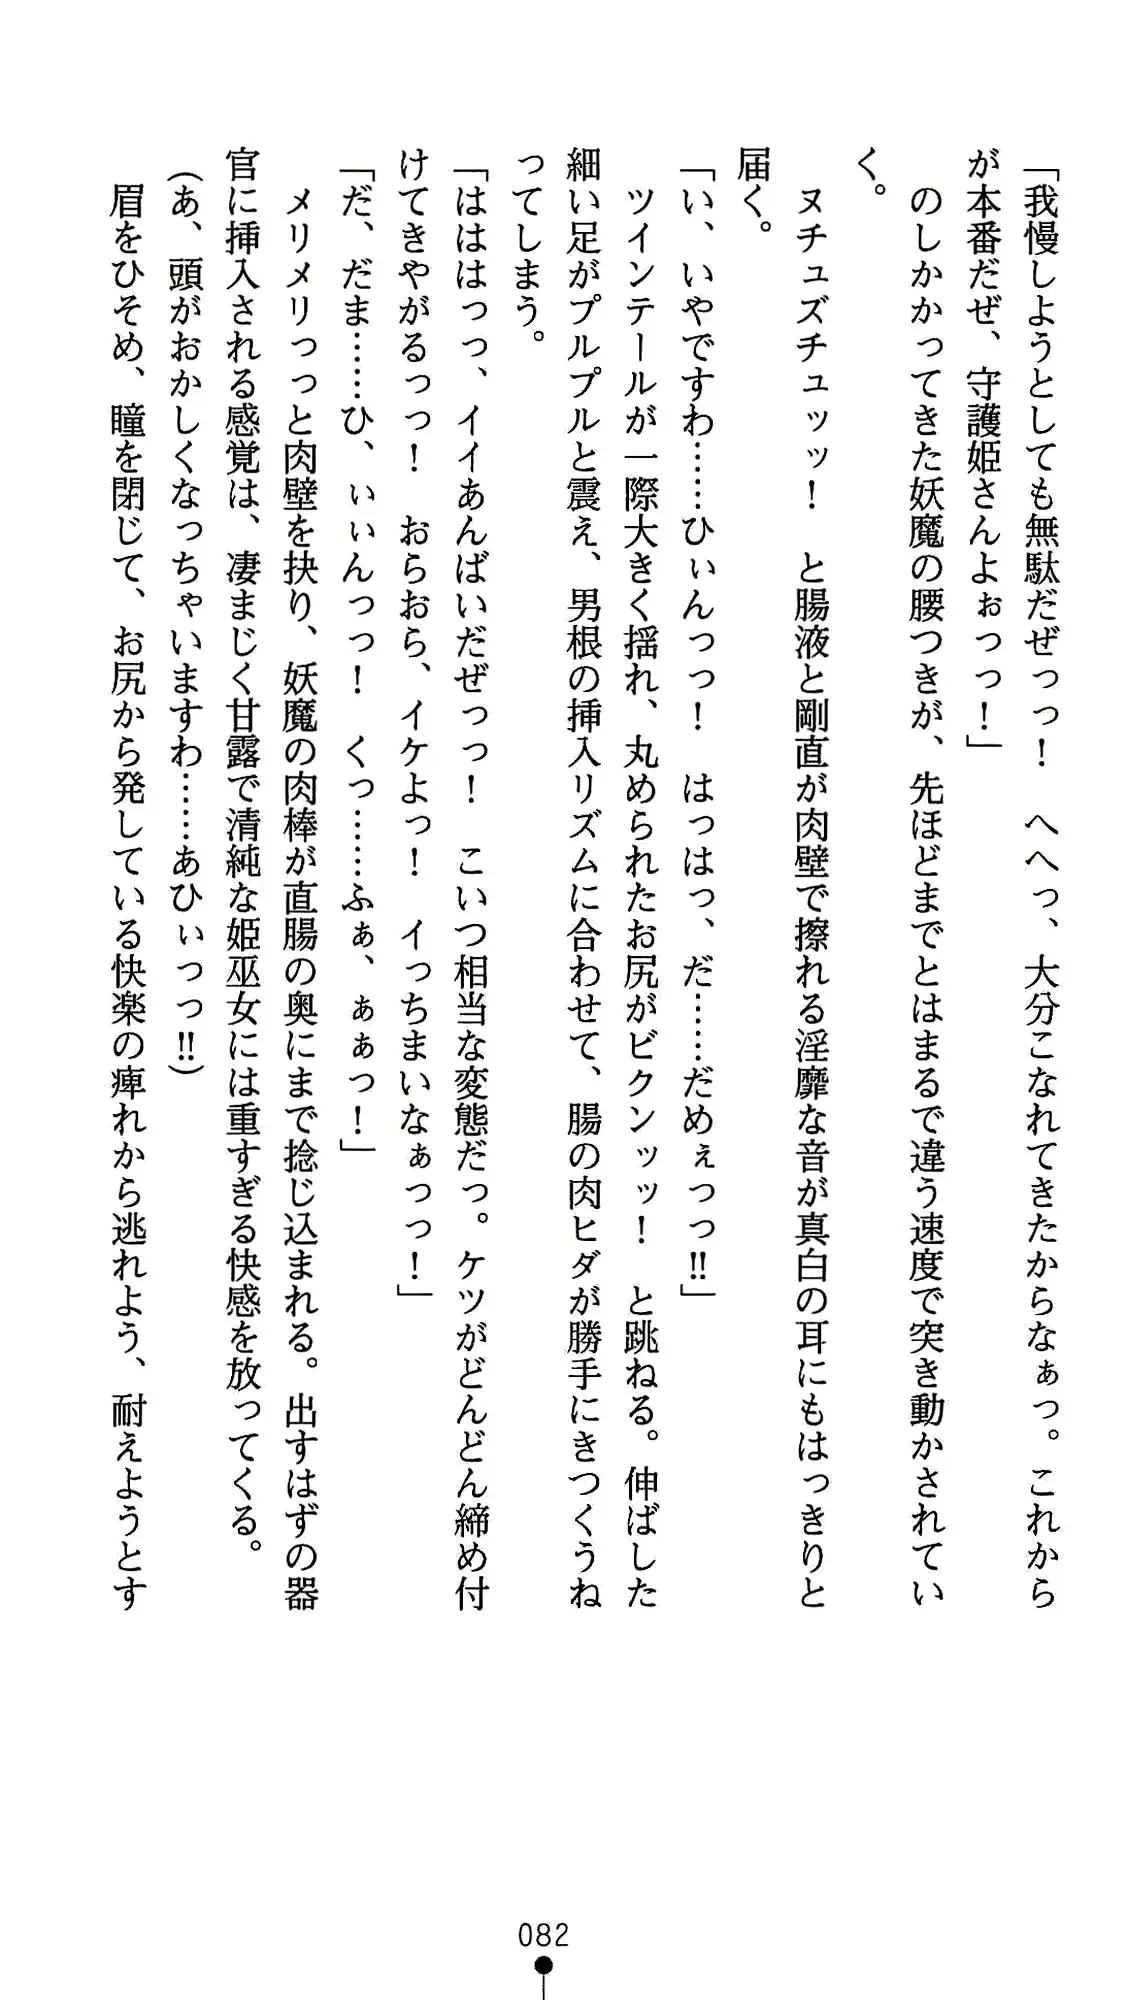 「我慢しようとしても無駄だぜっっ！　へへっ、大分こなれてきたからなぁっ。これから
が本番だぜ、守護姫さんよぉっっ！」
　のしかかってきた妖魔の腰つきが、先ほどまでとはまるで違う速度で突き動かされてい
く。
　ヌチュズチュッッ！　と腸液と剛直が肉壁で擦れる淫靡な音が真白の耳にもはっきりと
届く。
「い、いやですわ……ひぃんっっ！　はっはっ、だ……だめぇっっ‼」
　ツインテールが一際大きく揺れ、丸められたお尻がビクンッッ！　と跳ねる。伸ばした
細い足がプルプルと震え、男根の挿入リズムに合わせて、腸の肉ヒダが勝手にきつくうね
ってしまう。
「はははっっ、イイあんばいだぜっっ！　こいつ相当な変態だっ。ケツがどんどん締め付
けてきやがるっっ！　おらおら、イケよっ！　イっちまいなぁっっ！」
「だ、だま……ひ、ぃぃんっっ！　くっ……ふぁ、ぁぁっ！」
　メリメリっっと肉壁を抉り、妖魔の肉棒が直腸の奥にまで捻じ込まれる。出すはずの器
官に挿入される感覚は、凄まじく甘露で清純な姫巫女には重すぎる快感を放ってくる。
（あ、頭がおかしくなっちゃいますわ……あひぃっっ‼）
　眉をひそめ、瞳を閉じて、お尻から発している快楽の痺れから逃れよう、耐えようとす
082